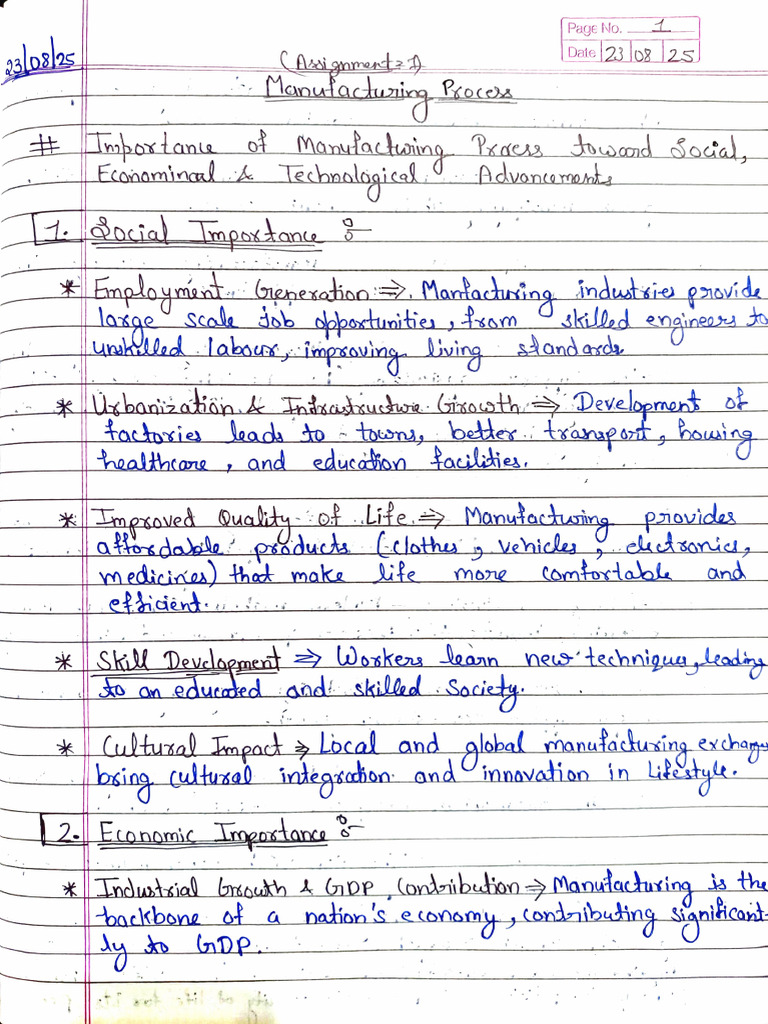 Page No. 1
23/08/25
Date 23 08 25
(Assignment:1)
Manufacturing Process
# Importance of Manufacturing Process toward Social,
Econominal & Technological Advancements
1. Social Importance :-
* Employment Generation ⇒ Manfacturing industries provide
large scale job opportunities, from skilled engineers to
unskilled labour, improving living standards.
* Urbanization & Infrastructure Growth ⇒ Development of
factories leads to towns, better transport, housing
healthcare, and education facilities.
* Improved Quality of Life ⇒ Manufacturing provides
affordable products (clothes, vehicles, electronics,
medicines) that make life more comfortable and
efficient.
* Skill Development ⇒ Workers learn new techniques, leading
to an educated and skilled Society.
* Cultural Impact ⇒ Local and global manufacturing exchange
bring cultural integration and innovation in lifestyle.
2. Economic Importance :-
* Industrial Growth & GDP Contribution ⇒ Manufacturing is the
backbone of a nation's economy, contributing significant-
ly to GDP.